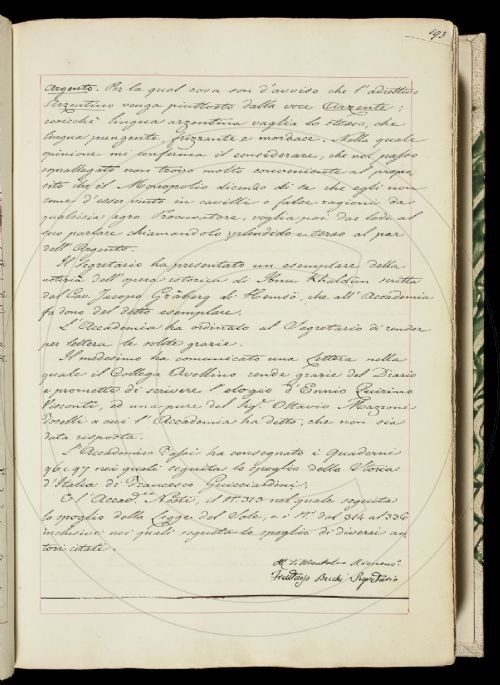 193
Argento. Per la qual cosa son d'avviso che l'adiettivo
Arzentino venga piuttosto dalla voce Arzente;
cosicchè lingua arzentina vaglia lo stesso, che
lingua pungente, frizzante e mordace. Nella quale
opinione mi conferma il considerare, che nel passo
sopraallegato non trovo molto conveniente al propo,
sito che il Monopolio dicendo di se che egli non
teme d'esser vinto in cavilli e false ragioni da
qualsisia agro Proccuratore, voglia poi dar lode al
suo parlare chiamandolo splendido e terso al par
dell'Argento.
Il Segretario ha presentato un esemplare della
notizia dell'opera istorica di Ibnu Khaldun scritta
dal Cav. Jacopo Gråberg di Hemsö, che all'Accademia
fa dono del detto esemplare.
L'Accademia ha ordinato al Segretario di render
per lettera le solite grazie.
Il medesimo ha comunicato una Lettera nella
quale il Collega Avellino rende grazie del Diario
e promette di scrivere l'elogio d'Ennio Quirino
Visconti, ed una pure del Sig. Ottavio Mazzoni
Toselli a cui l'Accademia ha detto, che non sia
data risposta.
L'Accademico Papi ha consegnato i Quaderni
96 e 97 nei quali seguita lo spoglio della Storia
d'Italia di Francesco Guicciardini;
E l'Accad.co Nesti, il N.o 313 nel quale seguita
lo spoglio della Legge del Sale, e i N.i dal 314 al 336
inclusive nei quali seguita lo spoglio di diversi au
tori citati.
Fruttuoso Becchi Segretario